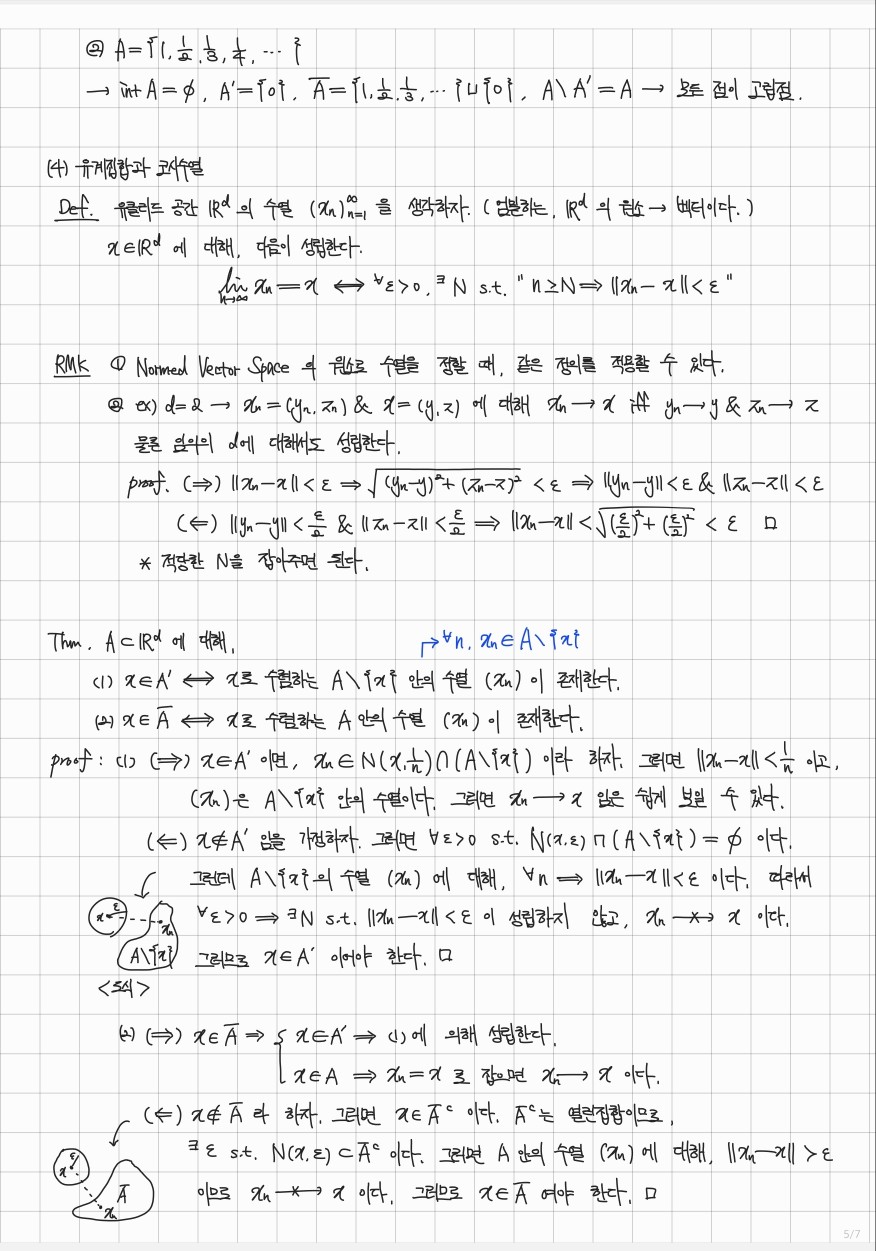 ② A = {1, 1/2, 1/3, 1/4, ⋯ }
→ int A = ∅, A' = {0}, A̅ = {1, 1/2, 1/3, ⋯ } ⊔ {0}, A \ A' = A → 모든 점이 고립점.
(4) 유계집합과 코시수열
Def. 유클리드 공간 ℝᵈ 의 수열 (xₙ)ₙ₌₁^∞ 을 생각하자. (엄밀하는, ℝᵈ 의 원소 → 벡터이다.)
x∈ℝᵈ 에 대해, 다음이 성립한다.
lim_{n→∞} xₙ = x ⟷ ∀ε>0, ∃N s.t. " n ≥ N ⟹ ||xₙ - x|| < ε "
RMK ① Normed Vector Space 의 원소로 수열을 정할 때, 같은 정의를 적용할 수 있다.
② ex) d=2 → xₙ = (yₙ, zₙ) & x = (y, z) 에 대해 xₙ → x iff yₙ → y & zₙ → z
물론 임의의 d에 대해서도 성립한다.
proof. (⇒) ||xₙ-x|| < ε ⟹ √((yₙ-y)² + (zₙ-z)²) < ε ⟹ ||yₙ-y|| < ε & ||zₙ-z|| < ε
(⇐) ||yₙ-y|| < ε/2 & ||zₙ-z|| < ε/2 ⟹ ||xₙ-x|| < √((ε/2)² + (ε/2)²) < ε □
* 적당한 N을 잡아주면 된다.
Thm. A⊂ℝᵈ 에 대해,
↱ ∀n, xₙ ∈ A\{x}
(1) x∈A' ⟺ x로 수렴하는 A\{x} 안의 수열 (xₙ) 이 존재한다.
(2) x∈A̅ ⟺ x로 수렴하는 A 안의 수열 (xₙ) 이 존재한다.
proof : (1) (⇒) x∈A' 이면, xₙ ∈ N(x, 1/n) ∩ (A\{x}) 이라 하자. 그러면 ||xₙ-x|| < 1/n 이고,
(xₙ)은 A\{x} 안의 수열이다. 그러면 xₙ ⟶ x 임은 쉽게 보일 수 있다.
(⇐) x∉A' 임을 가정하자. 그러면 ∀ε>0 s.t. N(x,ε) ∩ (A\{x}) = ∅ 이다.
그런데 A\{x}의 수열 (xₙ) 에 대해, ∀n ⟹ ||xₙ-x|| < ε 이다. 따라서
x ε xₙ ∀ε>0 ⟹ ∃N s.t. ||xₙ-x|| < ε 이 성립하지 않고, xₙ ↛ x 이다.
A\{x} 그러므로 x∈A' 이어야 한다. □
<도식>
(2) (⇒) x∈A̅ ⟹ { x∈A' ⟹ (1)에 의해 성립한다.
x∈A ⟹ xₙ = x 로 잡으면 xₙ ⟶ x 이다.
(⇐) x∉A̅ 라 하자. 그러면 x∈A̅ᶜ 이다. A̅ᶜ는 열린집합이므로,
x ε ∃ε s.t. N(x,ε) ⊂ A̅ᶜ 이다. 그러면 A 안의 수열 (xₙ) 에 대해, ||xₙ-x|| > ε
A̅ xₙ 이므로 xₙ ↛ x 이다. 그러므로 x∈A̅ 여야 한다. □
5/7